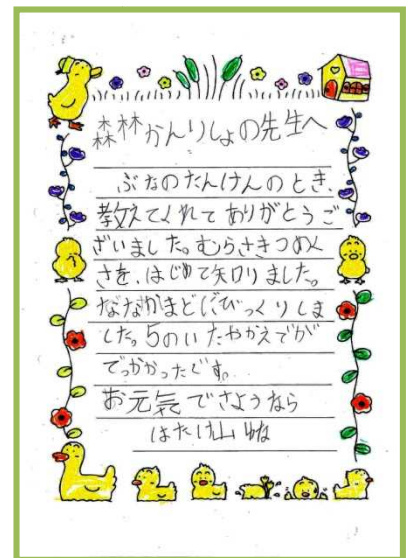 森林かんりしょの先生へ
ぶなのたんけんのとき、
教えてくれてありがとうご
ざいました。むらさきつめく
さを、はじめて知りました。
ななかまどにびっくりしま
した。5のいたやかえでが
でっかかったです。
お元気でさようなら
はたけ山 ゆね